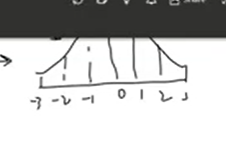 -3 -2 -1 0 1 2